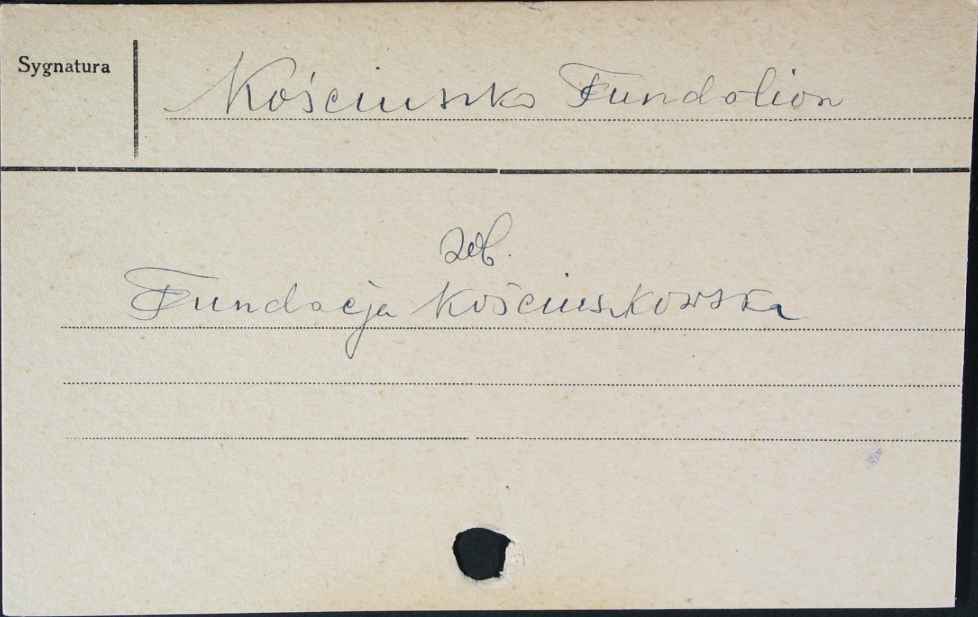 Sygnatura
Kościuszko Fundation
zob.
Fundacja Kościuszkowska